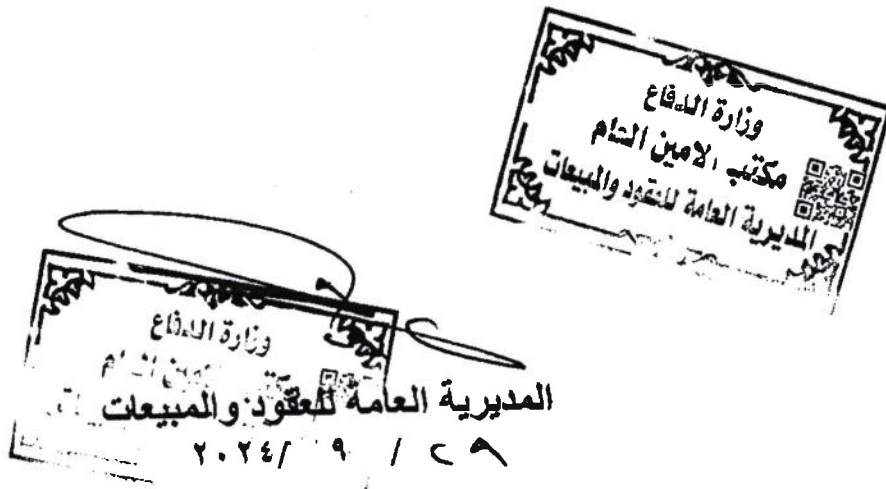 وزارة الدفاع
مكتب الامين العام
المديرية العامة للعقود والمبيعات
وزارة الدفاع
المديرية العامة للعقود والمبيعات
٢٨ / ٩ /٢٠٢٤